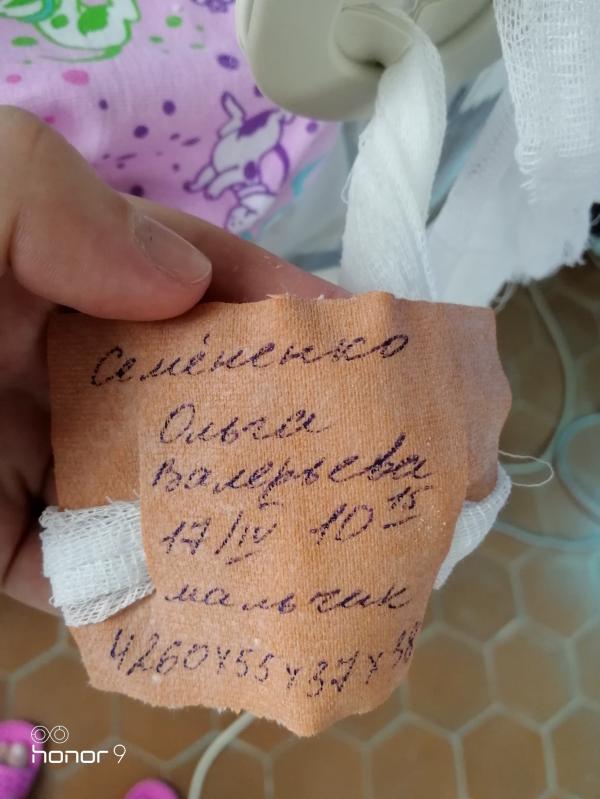 Семёненко
Ольга
Валерьева
17/IV 10 15
мальчик
4260х55х37х38
honor 9